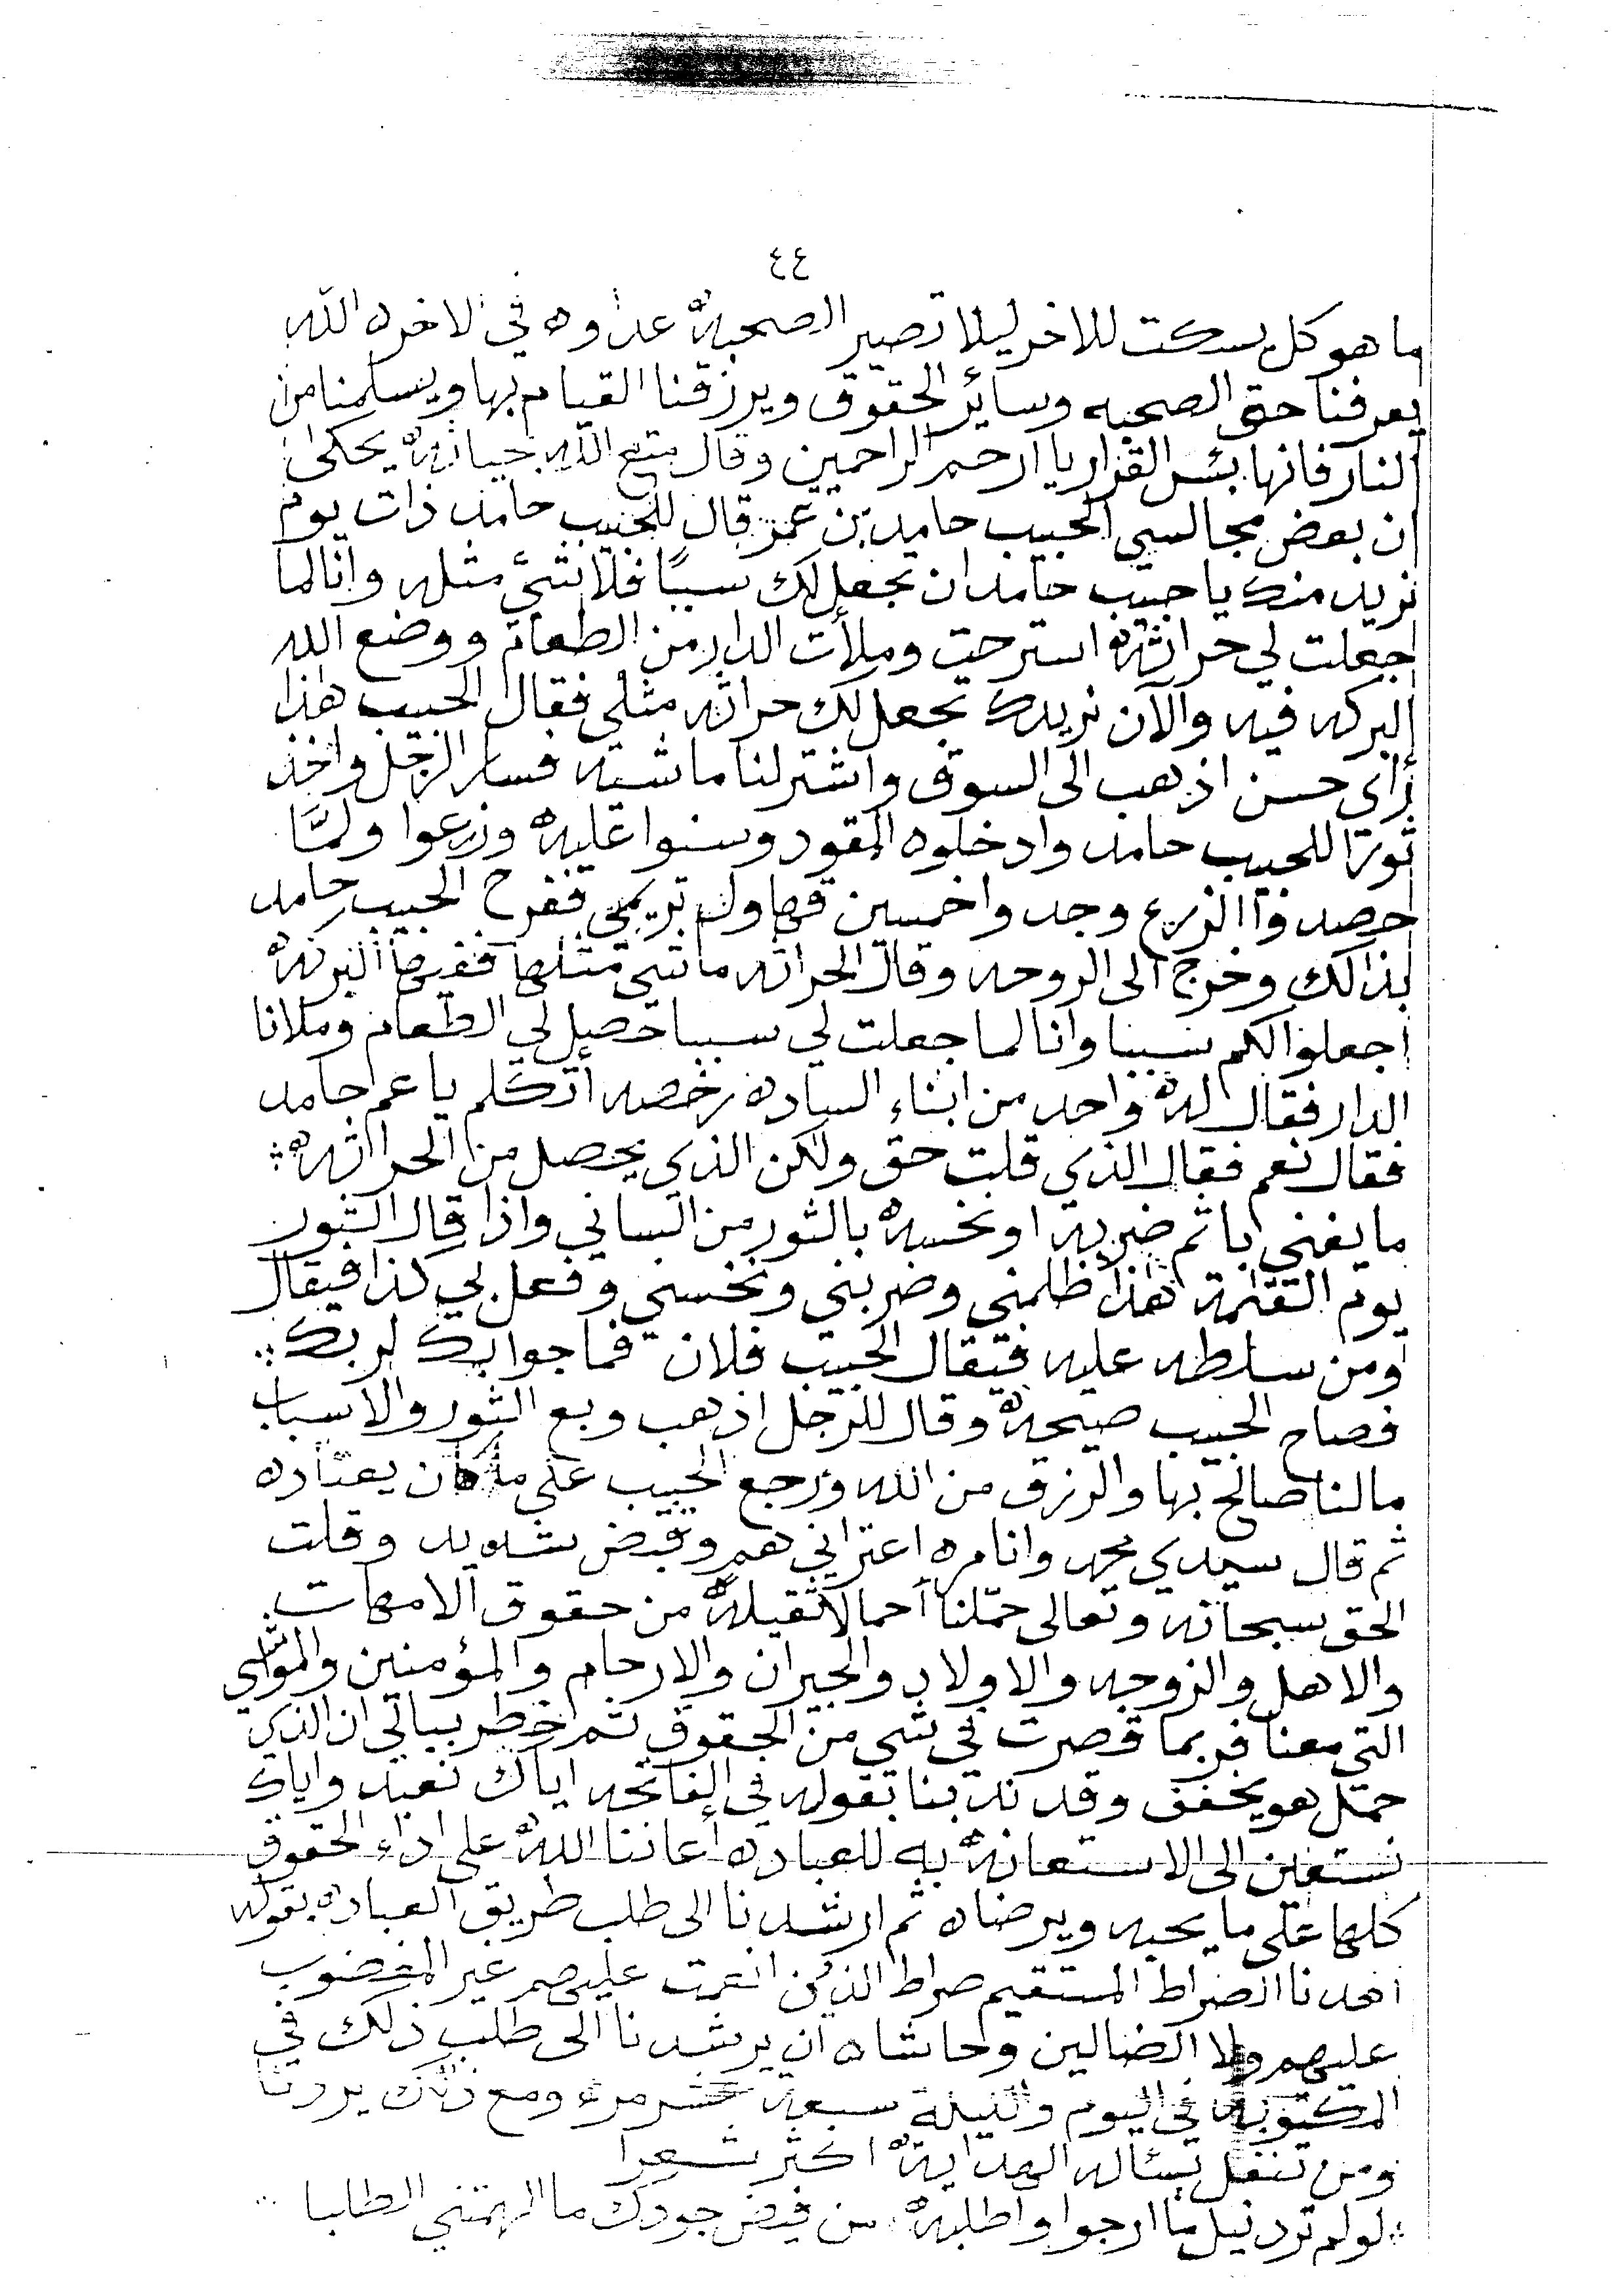 ٤٤
ما هو كل يسكت للاخر ليلا تصير الصحبة عداوه في الاخره الله
يعرفنا حق الصحبه وسائر الحقوق ويرزقنا القيام بها ويسلمنا من
النار فانها بئس القرار يا ارحم الراحمين وقال متع الله بحياته يحكى
ان بعض مجالسي الحبيب حامد بن عمر قال للحبيب حامد ذات يوم
نريد منك يا حبيب حامد ان تجعل لك سببًا فلا شيّ مثله وانا لما
جعلت لي حراثة استرحت وملأت الدار من الطعام ووضع الله
البركه فيه والآن نريدك تجعل لك حراثه مثلي فقال الحبيب هذا
رأى حسن اذهب الى السوق واشتر لنا ما شيته فسار الرجل واخذ
ثورًا للحبيب حامد وادخلوه المقود وسنوا عليه وزرعوا ولمَّا
حصدوا الزرع وجدوا خمسين قهاول تريمي ففرح الحبيب حامد
بذالك وخرج الى الروحه وقال الحراثه ما شي مثلها ففيها البركة
اجعلوا لكم سببا وانا لما جعلت لي سببا حصل لي الطعام وملانا
الدار فقال له واحد من ابناء الساده رخصه اتكلم يا عم حامد
فقال نعم فقال الذي قلت حق ولكن الذي يحصل من الحراثة
ما يفني باثم ضربة او نخسة بالثور من الساني واذا قال الثور
يوم القيمة هذا ظلمني وضربني ونخسني وفعل بي كذا فيقال
ومن سلطه عليه فيقال الحبيب فلان فما جوابك لربك
فصاح الحبيب صيحة وقال للرجل اذهب وبع الثور والاسباب
ما لنا صالح بها والرزق من الله ورجع الحبيب على ما كان يعتاده
ثم قال سيدي محمد وانا مره اعتراني هم وقبض شديد وقلت
الحق سبحانه وتعالى حمّلنا أحمالا ثقيلة من حقوق الامهات
والاهل والزوجه والاولاد والجيران والارحام والمؤمنين والمواشي
التي معنا فربما قصرت في شي من الحقوق ثم خطر ببالي ان الذي
حمّل هو يخفف وقد ندبنا بقوله في الفاتحه اياك نعبد واياك
نستعين الى الاستعانة به للعباده أعاننا الله على اداء الحقوق
كلها على ما يحبه ويرضاه ثم ارشدنا الى طلب طريق العباده بقوله
اهدنا الصراط المستقيم صراط الذين انعمت عليهم غير المغضوب
عليهم ولا الضالين وحاشاه ان يرشدنا الى طلب ذلك في
المكتوبة في اليوم والليلة سبعة عشر مره ومع ذلك يردنا
ومن تنفل يسئاله الهداية اكثر شعرا
لو لم ترد نيل ما ارجوا واطلبه من فيض جودك ما الهمتني الطلبا